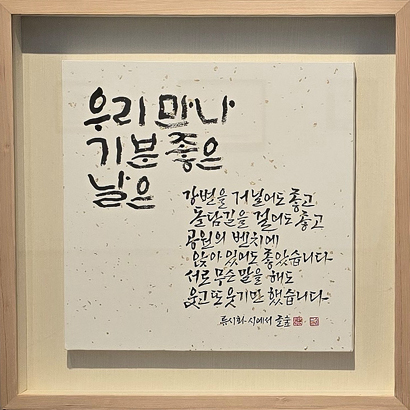 우리 만나
기분 좋은
날은
강변을 거닐어도 좋고
돌담길을 걸어도 좋고
공원의 벤치에
앉아 있어도 좋았습니다
서로 무슨 말을 해도
웃고 또 웃기만 했습니다
류시화 시에서 솔숲